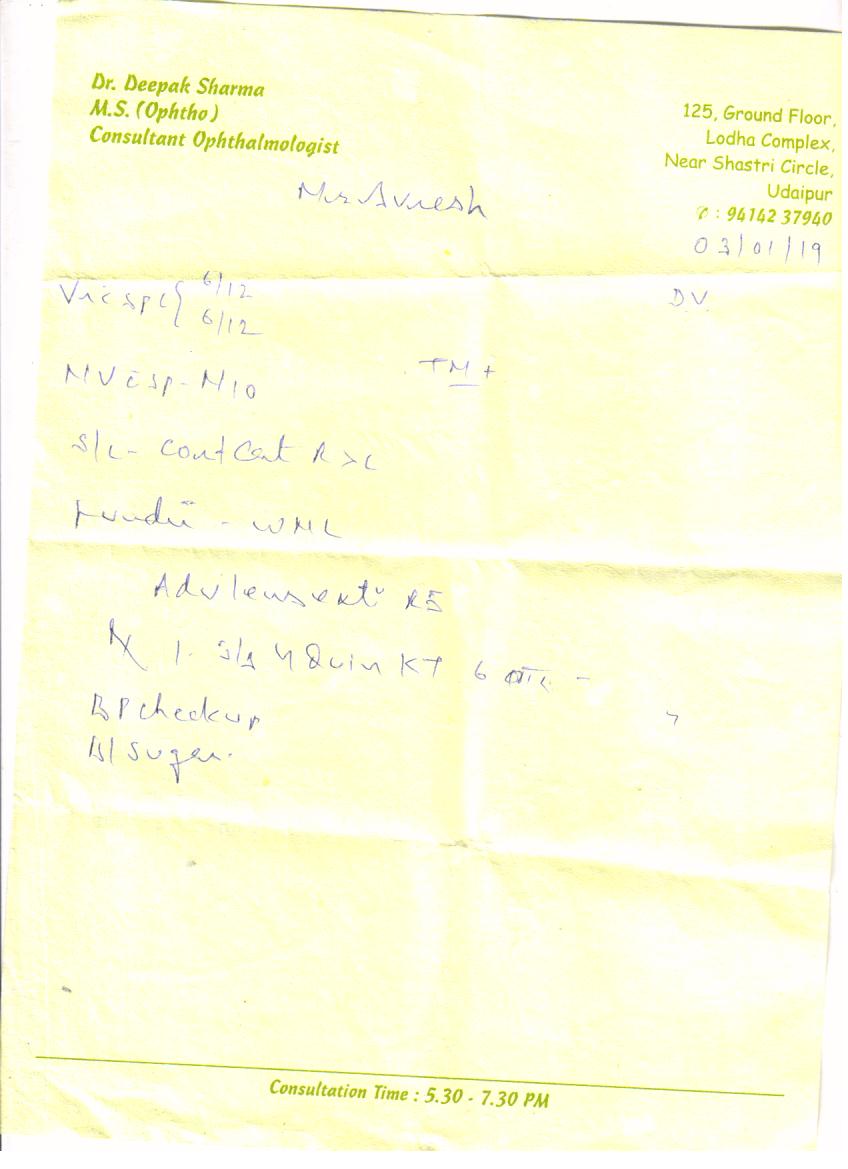 Dr. Deepak Sharma
M.S. (Ophtho)
Consultant Ophthalmologist
125, Ground Floor,
Lodha Complex,
Near Shastri Circle,
Udaipur
✆ : 94142 37940
Mr Avnesh
03/01/19
6/12
6/12
DV
N10
TM +
S/L - Cort Cat R > L
Fundii - WNL
Adv lens ext RE
Rx 1. 4 Quin KT 6
BP checkup
B/Sugar.
Consultation Time : 5.30 - 7.30 PM